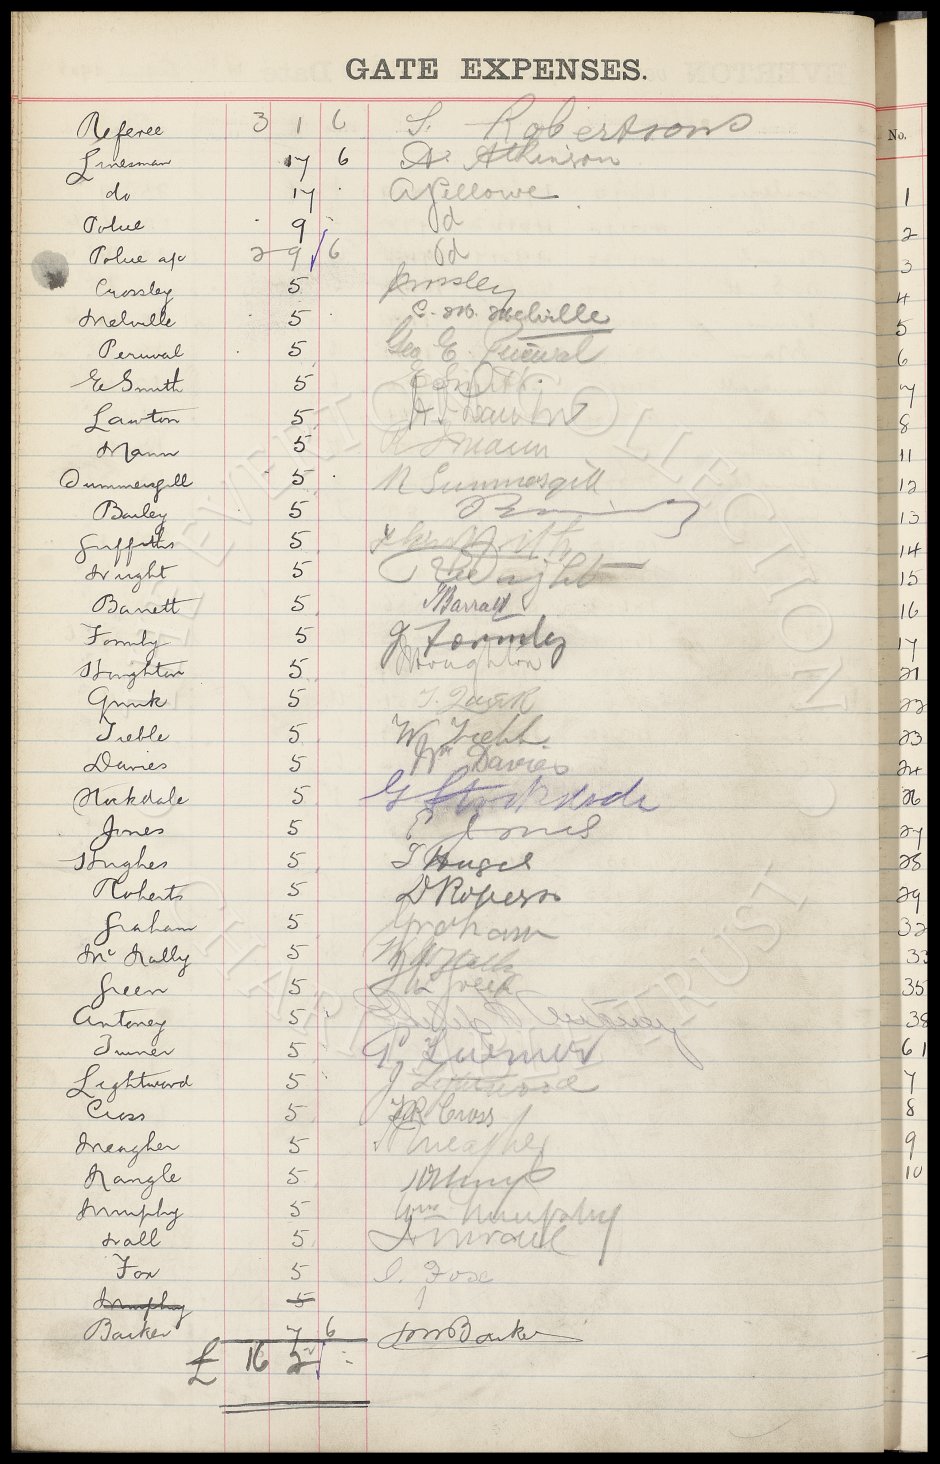 GATE EXPENSES.
Referee 3 1 6 S. Robertson
Linesman 17 6 A. Atkinson
do 17 A Fellowes
Police 9 pd
Police a/c 2 9 6 pd
Crossley 5 Crossley
Melville 5 C. W. Melville
Percival 5 Geo E. Percival
E Smith 5 E Smith
Lawton 5 Lawton
Mann 5 Mann
Summersgill 5 N Summersgill
Bailey 5
Griffiths 5
Wright 5 Wright
Barrett 5 Barratt
Formby 5 J Formby
Houghton 5 Houghton
Quirk 5 T. Quirk
Treble 5 W Treble
Davies 5 Wm Davies
Stockdale 5 G Stockdale
Jones 5 E Jones
Hughes 5 T Huges
Roberts 5 D Roberts
Graham 5 Graham
McNally 5
Green 5 Green
Antoney 5
Turner 5 Turner
Lightwood 5 J Lightwood
Cross 5 Cross
Meagher 5 Meagher
Nangle 5
Murphy 5 Wm Murphy
Wall 5
Fox 5 Foxe
Murphy 5
Barker 7 6 Barker
£ 16 2 -
No.
1
2
3
4
5
6
7
8
11
12
13
14
15
16
17
21
22
23
24
26
27
28
29
32
33
35
38
61
7
8
9
10
THE EVERTON COLLECTION
CHARITABLE TRUST